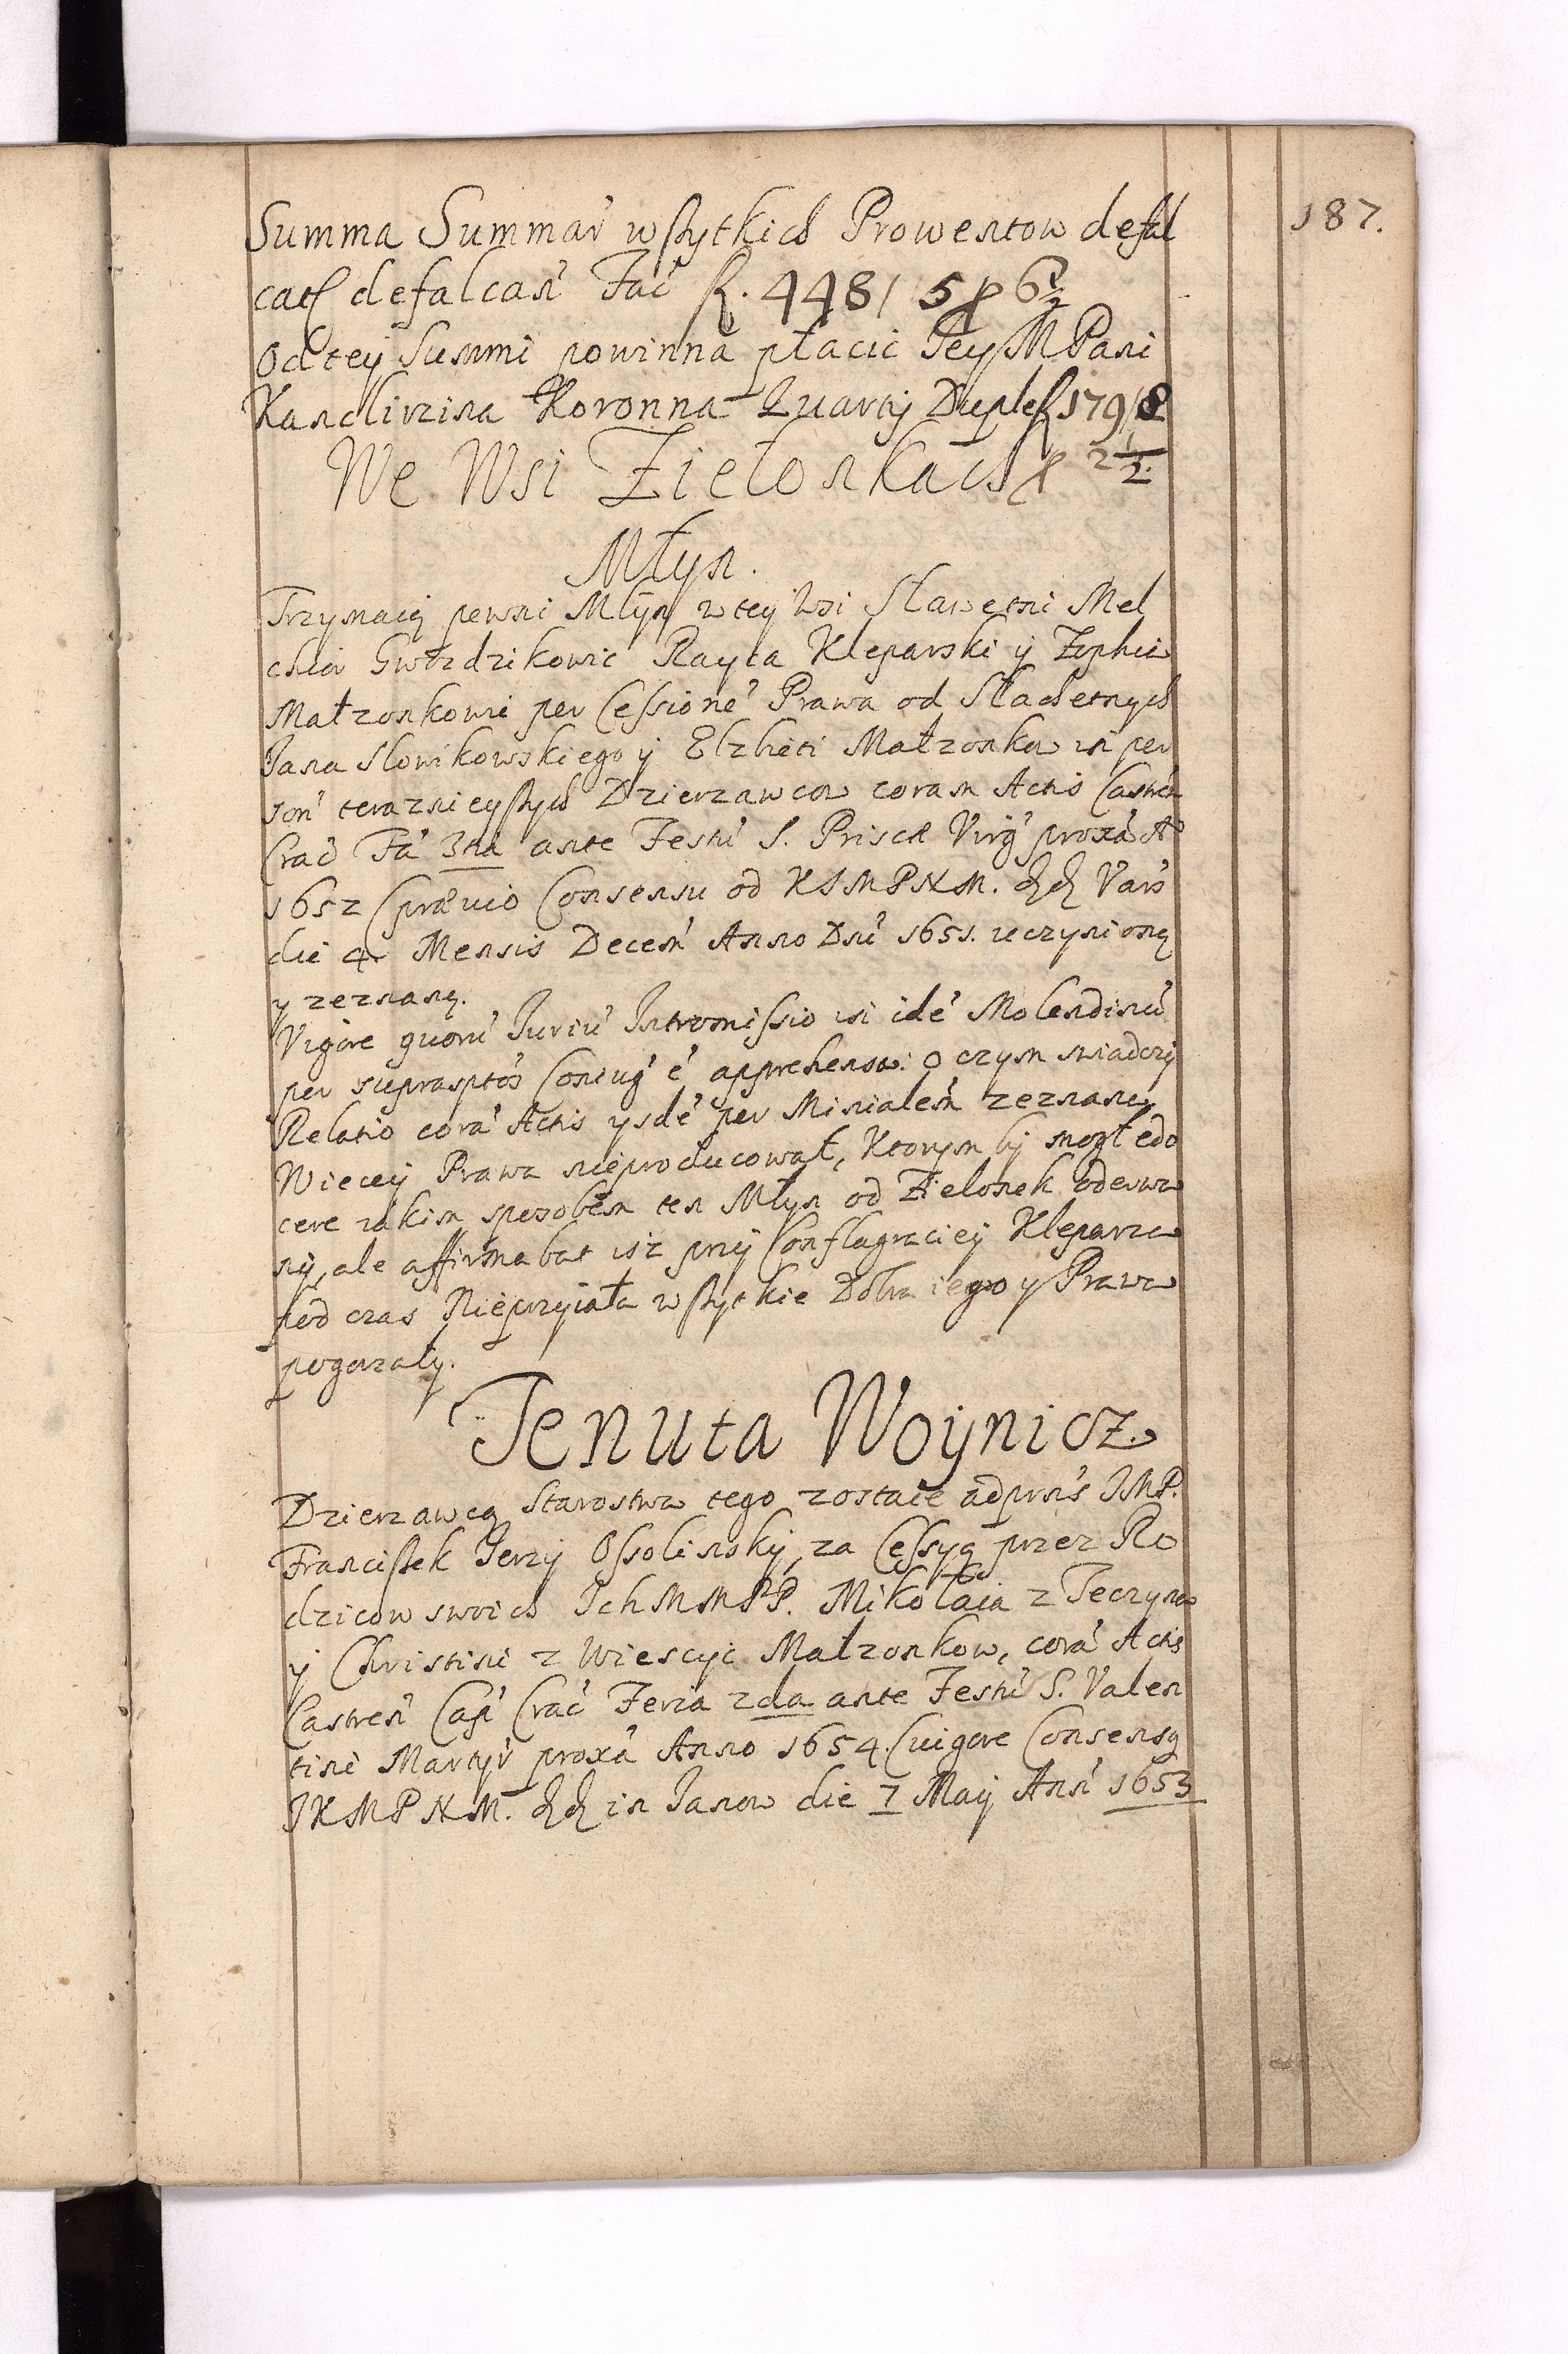 187.
Summa Summar̃ wszytkich Prowentow defal
cat defalcań Fać f. 448/ 5 ₰ 6½
Od tey Summi powinna płacic JeyMPani
Kanclirzina Koronna Quarty Duple f 179/8
We Wsi Zielonkach ₰ 2½.
Młyn.
Trzymaią pewni Młyn w tey Wsi Sławetni Mel
chior Gwozdzikowic Rayca Kleparski ÿ Zophia
Małzonkowie per Cessionē Prawa od Slachetnych
Jana Slowikowskiego ÿ Elzbieti Małzonkow in per
son̄ teraznieyszych Dzierzawcow coram Actis Castreń
Crać Fā 3tia ante Festū S. Priscæ Virg̃ proxā Aº
1652 prævio Consensu od KJMPNM. dd Vars̃
die 4 Mensis Decem̃ Anno Dnī 1651. uczynioną
y zeznaną.
Vigore quorū Juriū Intromissio in idē Molendinū
per suprasptos Coniug̃ ē apprehensa: o czym swiadczy
Relatio corā Actis ysdē per Minialem̃ zeznana,
Wiecey Prawa nieproducował, Ktorym by mogł edo
cere iakim sposobem ten Młyn od Zielonek oderwa
ny, ale affirmabat isz przy Conflagraciey Kleparza
pod czas Nieprzyiała wszytkie Dobra iego y Prawa
pogorzały.
Tenuta Woÿnicz.
Dzierzawcą Starostwa tego zostaie ad prns̃ JMP.
Franciszek Jerzy Ossolinsky, za Cessyą przez Ro
dzicow swoich IchMMPP. Mikołaia z Teczyna
ÿ Christini z Wiescyc Małzonkow, corā Actis
Castreń Cap̃ Crać Feria 2da ante Festū S. Valen
tini Martÿr̃ proxā Anno 1654. vigore Consensu
JKMPNM. dd in Janow die 7 Maÿ Anñ 1653